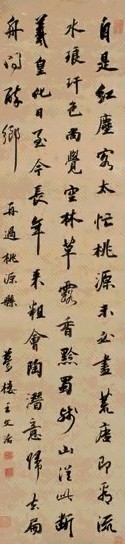 自是紅塵客太忙桃源未必盡荒唐即看流
水琅玕色尚覺空林草露香黔蜀山從此斷
羲皇化日至今長年來粗會陶潛意歸去扁
舟問醉鄉 再過桃源縣
夢樓王文治